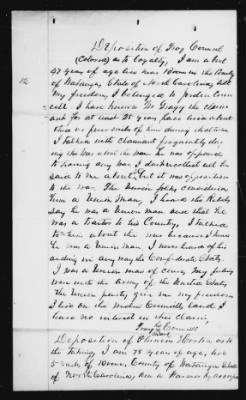 Deposition of Troy Council
(Colored) as to loyalty, I am about
47 years of age live near Boone in the County
of Watauga State of North Carolina, before
my freedom I belonged to Jordan Coun
cill. I have known Mr Gragg the claim
ant for at least 25 years have lived about
three or four miles of him during that time
I talked with claimant frequently dur
ing the war about the war he was opposed
to having any war, I dont recollect all he
said to me about it, but it was opposition
to the war. The Union folks considered
him a Union man, I heard the Rebels
say he was a Union man and that he
was a traitor to his Country, I talked
to him about the war because I knew
he was a Union man, I never heard of his
aiding in any way the Confederate States
I was a Union man of course, My feeling
were with the Army of the United States
The Union party give me my freedom
I live on the Jordan Councill land I
have no interest in this claim,
Troy his Councill
mark
Deposition of Harrison Horton as to
the Taking, I am 78 years of age, live
5 miles of Boone, County of Watauga State
of North Carolina, Am a Farmer by occupa
12